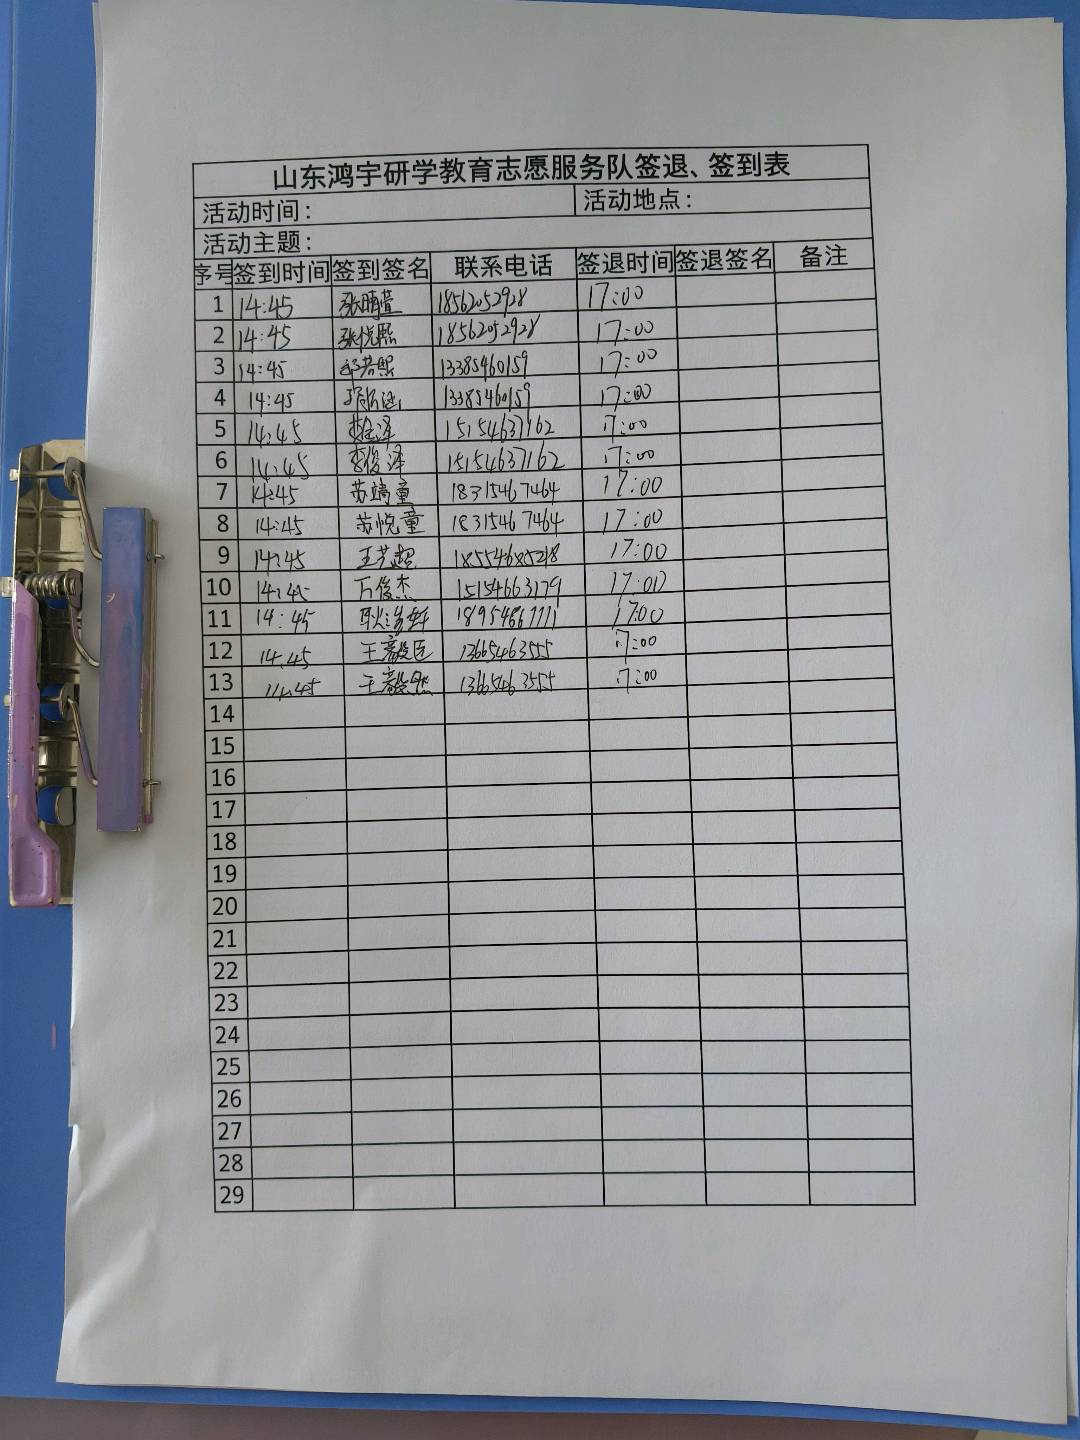 山东鸿宇研学教育志愿服务队签退、签到表
活动时间： 活动地点：
活动主题：
序号 签到时间 签到签名 联系电话 签退时间 签退签名 备注
1 14:45 张晴萱 18562052928 17:00
2 14:45 张悦熙 18562052928 17:00
3 14:45 13385460159 17:00
4 14:45 13385460159 17:00
5 14:45 15154637162 17:00
6 14:45 李俊泽 15154637162 17:00
7 14:45 苏靖童 18315467464 17:00
8 14:45 苏悦童 18315467464 17:00
9 14:45 王艺超 18554685218 17:00
10 14:45 万俊杰 15154663179 17:00
11 14:45 18954867111 17:00
12 14:45 王毅臣 13665463555 17:00
13 14:45 王毅然 13665463555 17:00
14
15
16
17
18
19
20
21
22
23
24
25
26
27
28
29